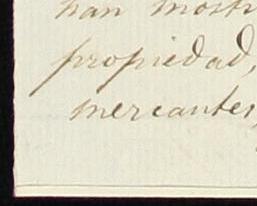 han mostr
propiedad,
mercantes,